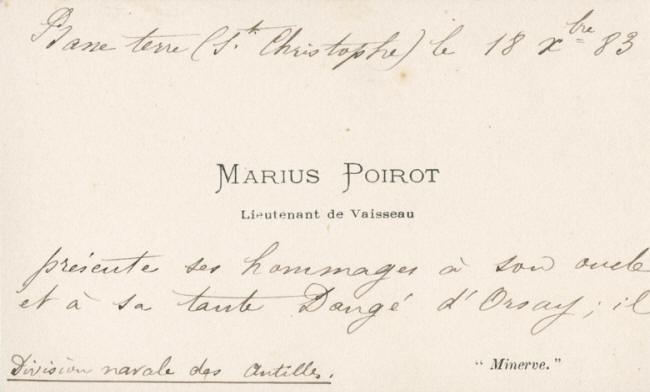 Basse terre (St. Christophe) le 18 xbre 83
MARIUS POIROT
Lieutenant de Vaisseau
présente ses hommages à son oncle
et à sa tante Dangé d'Orsay; il
Division navale des Antilles.
"Minerve."